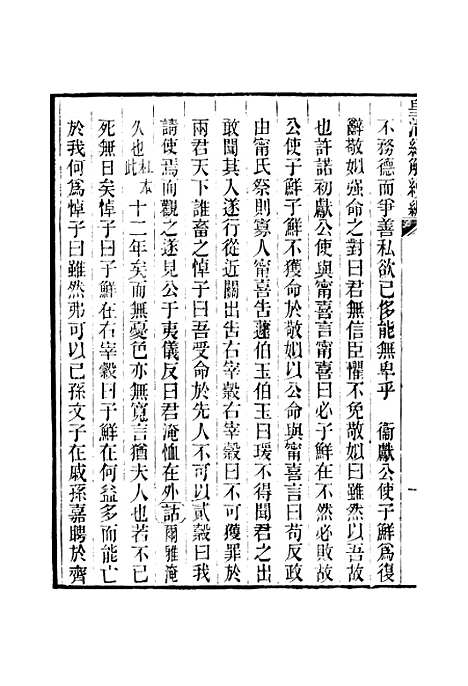 皇清經解續編
不務德而爭善私欲已侈能無卑乎　衞獻公使子鮮爲復
辭敬姒强命之對曰君無信臣懼不免敬姒曰雖然以吾故
也許諾初獻公使與甯喜言甯喜曰必子鮮在不然必敗故
公使子鮮子鮮不獲命於敬姒以公命與甯喜言曰苟反政
由甯氏祭則寡人甯喜告蘧伯玉伯玉曰瑗不得聞君之出
敢聞其入遂行從近關出告右宰穀右宰穀曰不可獲罪於
兩君天下誰畜之悼子曰吾受命於先人不可以貳穀曰我
請使焉而觀之遂見公于夷儀反曰君淹恤在外話爾雅淹
久也杜本此十二年矣而無憂色亦無寬言猶夫人也若不已
死無日矣悼子曰子鮮在右宰穀曰子鮮在何益多而能亡
於我何爲悼子曰雖然弗可以已孫文子在戚孫嘉聘於齊